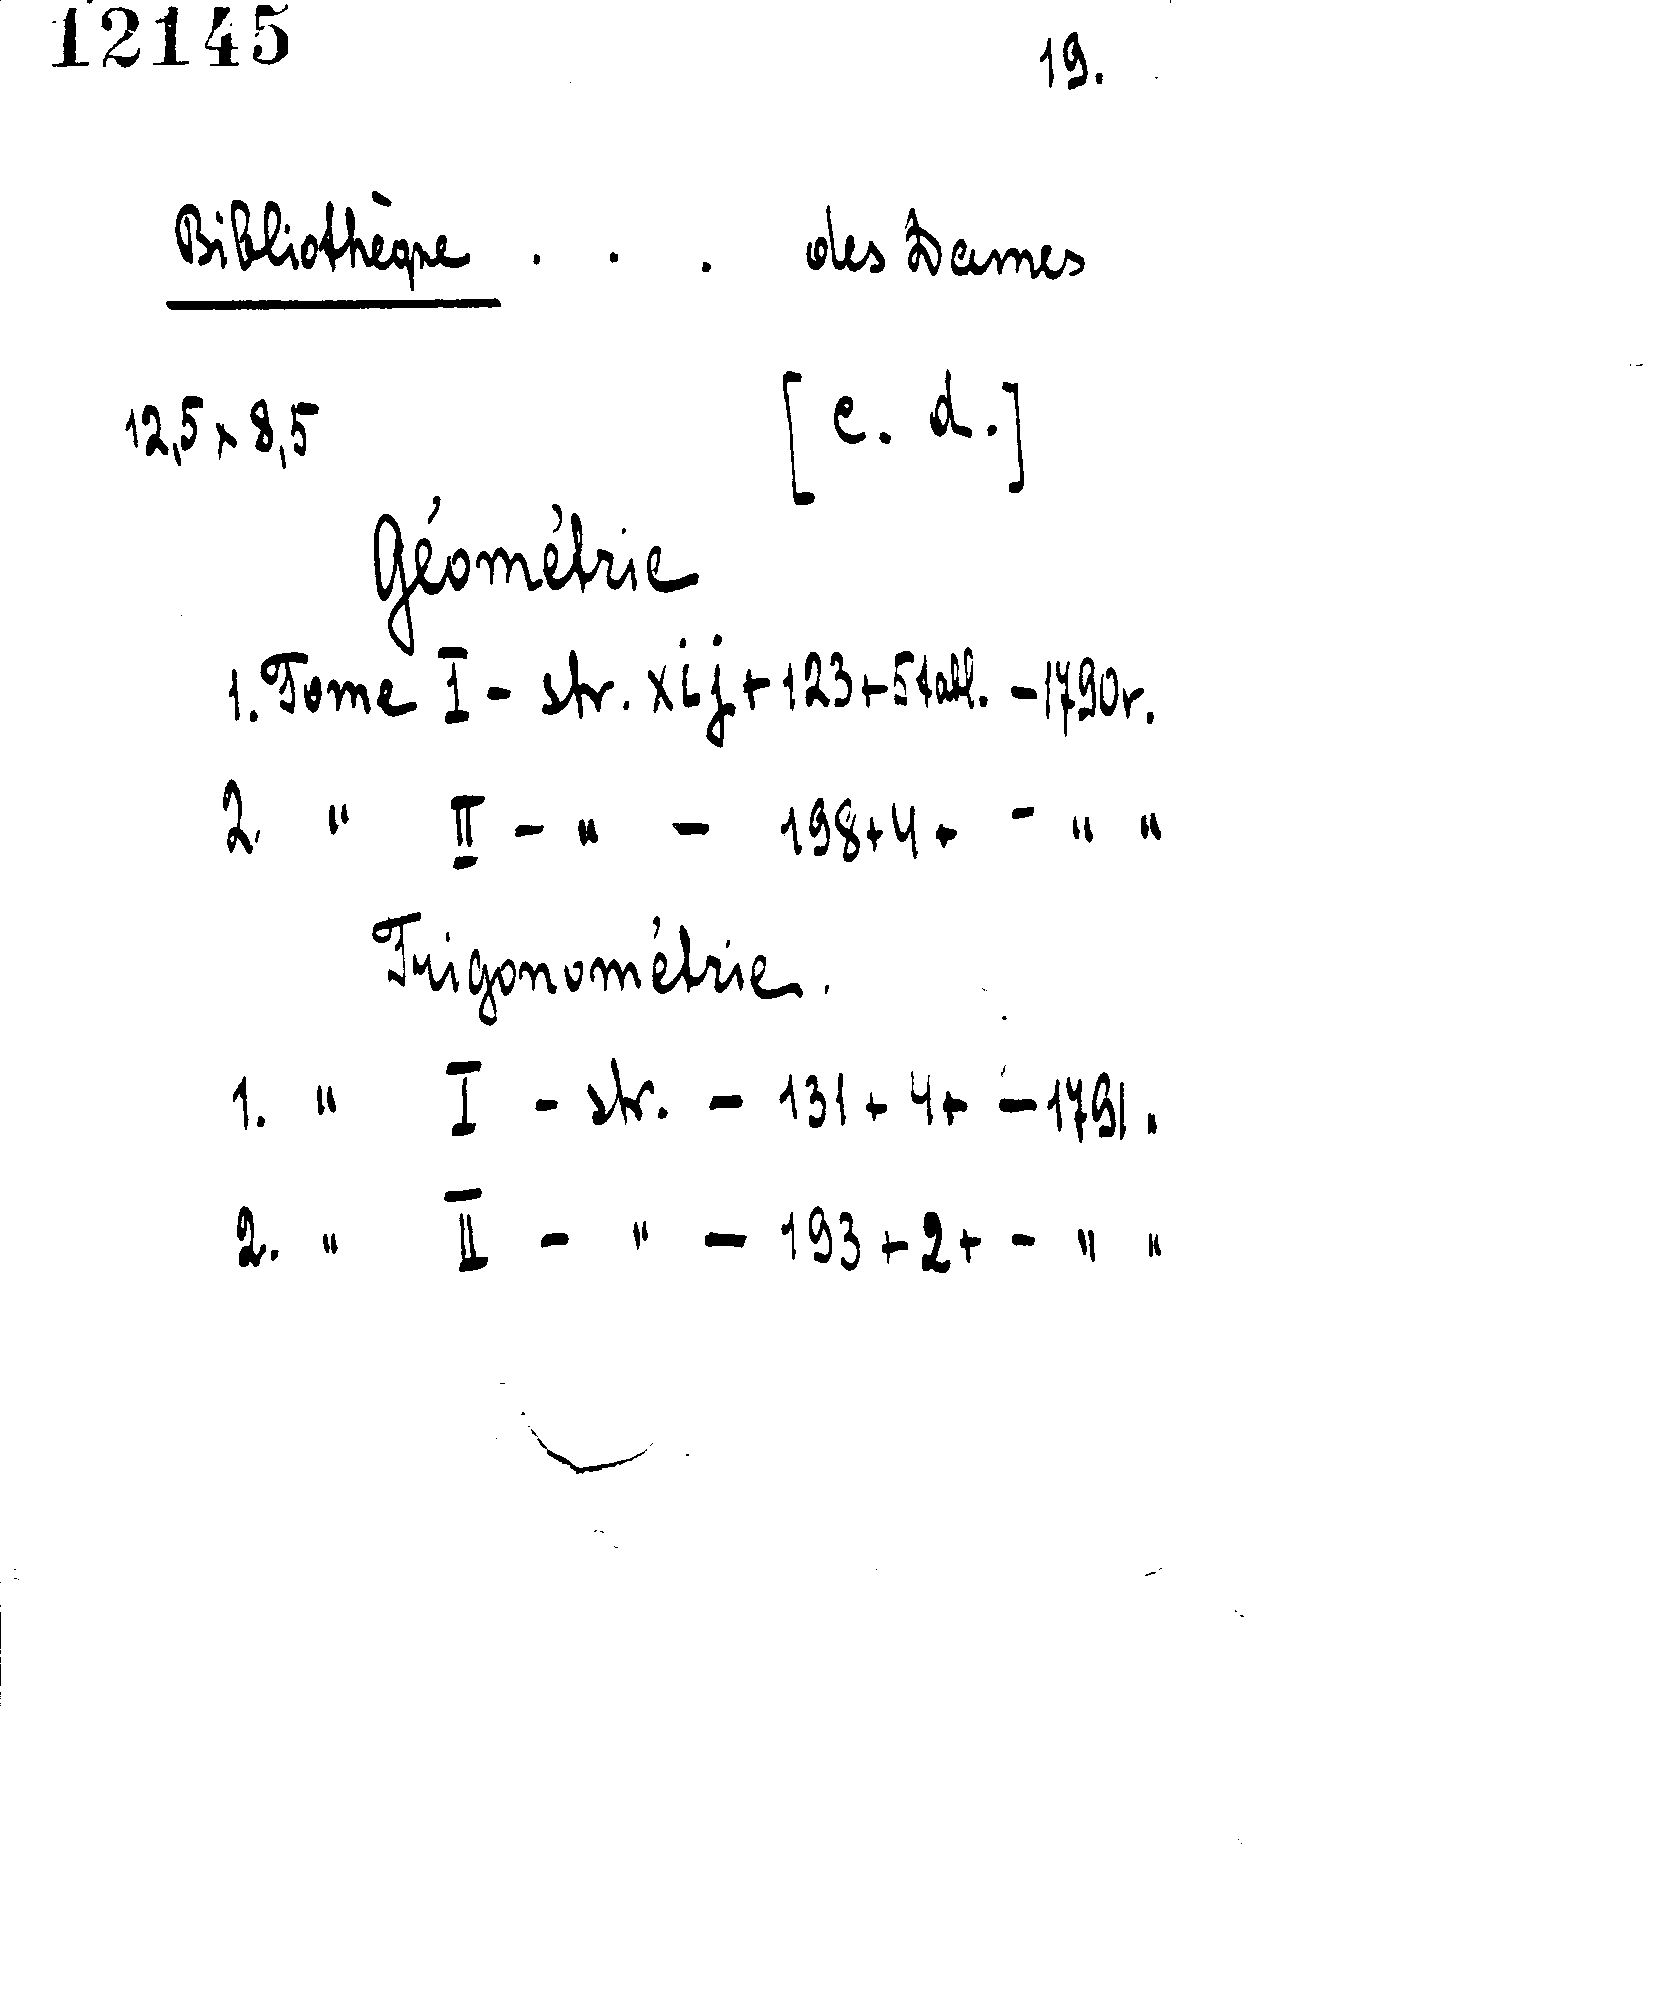 12145
19.
Bibliothèque . . . des Dames
12,5 x 8,5 [c. d.]
Géométrie
1. Tome I - str. xij + 123 + 5 tabl. - 1790 r.
2. " II - " - 198 + 4 + - " "
Trigonométrie.
1. " I - str. - 131 + 4 + - 1791.
2. " II - " - 193 + 2 + - " "